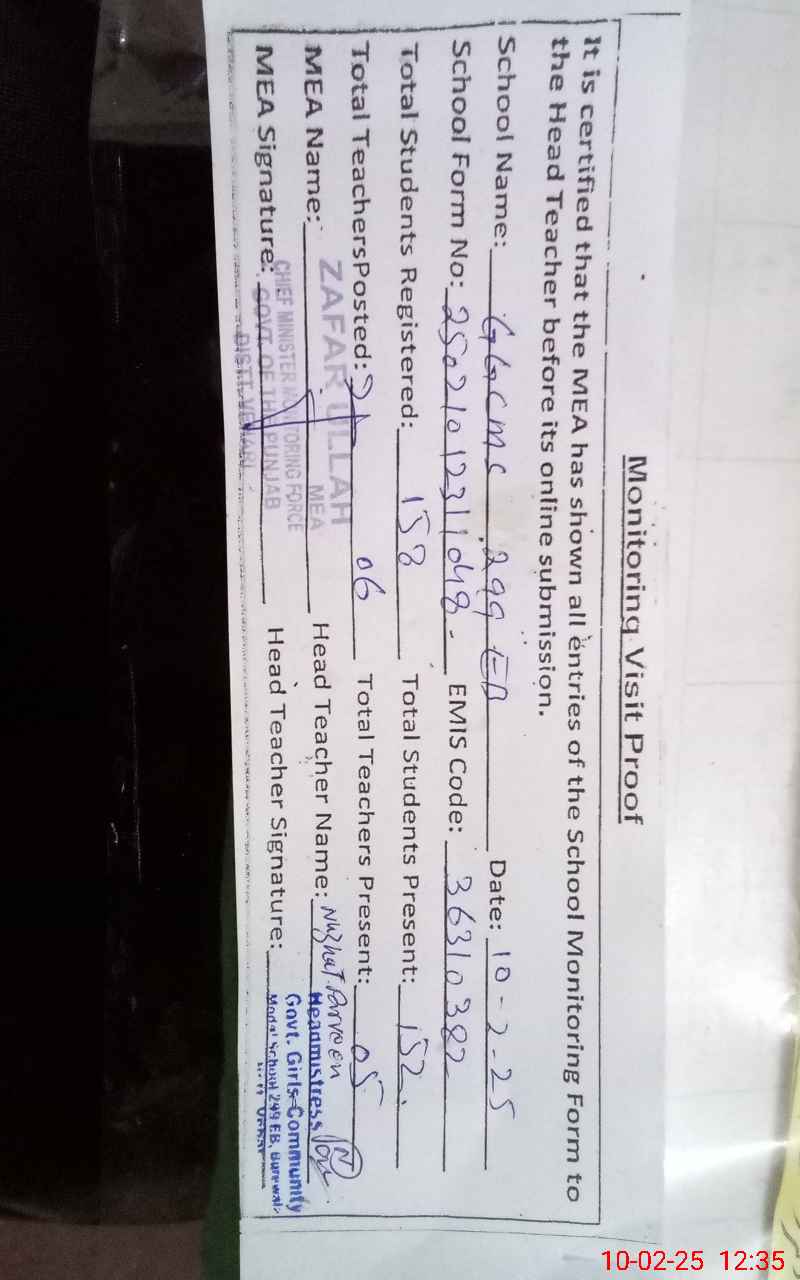 Monitoring Visit Proof
It is certified that the MEA has shown all entries of the School Monitoring Form to
the Head Teacher before its online submission.
School Name: GGCMS 299 EB Date: 10-2-25
School Form No: 25021012311048. EMIS Code: 36310382
Total Students Registered: 158 Total Students Present: 152.
Total TeachersPosted: 06 Total Teachers Present: 05
MEA Name: ZAFAR ULLAH Head Teacher Name: Nuzhat Parveen
MEA
Headmistress
MEA Signature: Head Teacher Signature:
CHIEF MINISTER MONITORING FORCE
GOVT. OF THE PUNJAB
DISTT. VEHARI
Govt. Girls Community
Model School 299 EB, Burewala
10-02-25 12:35